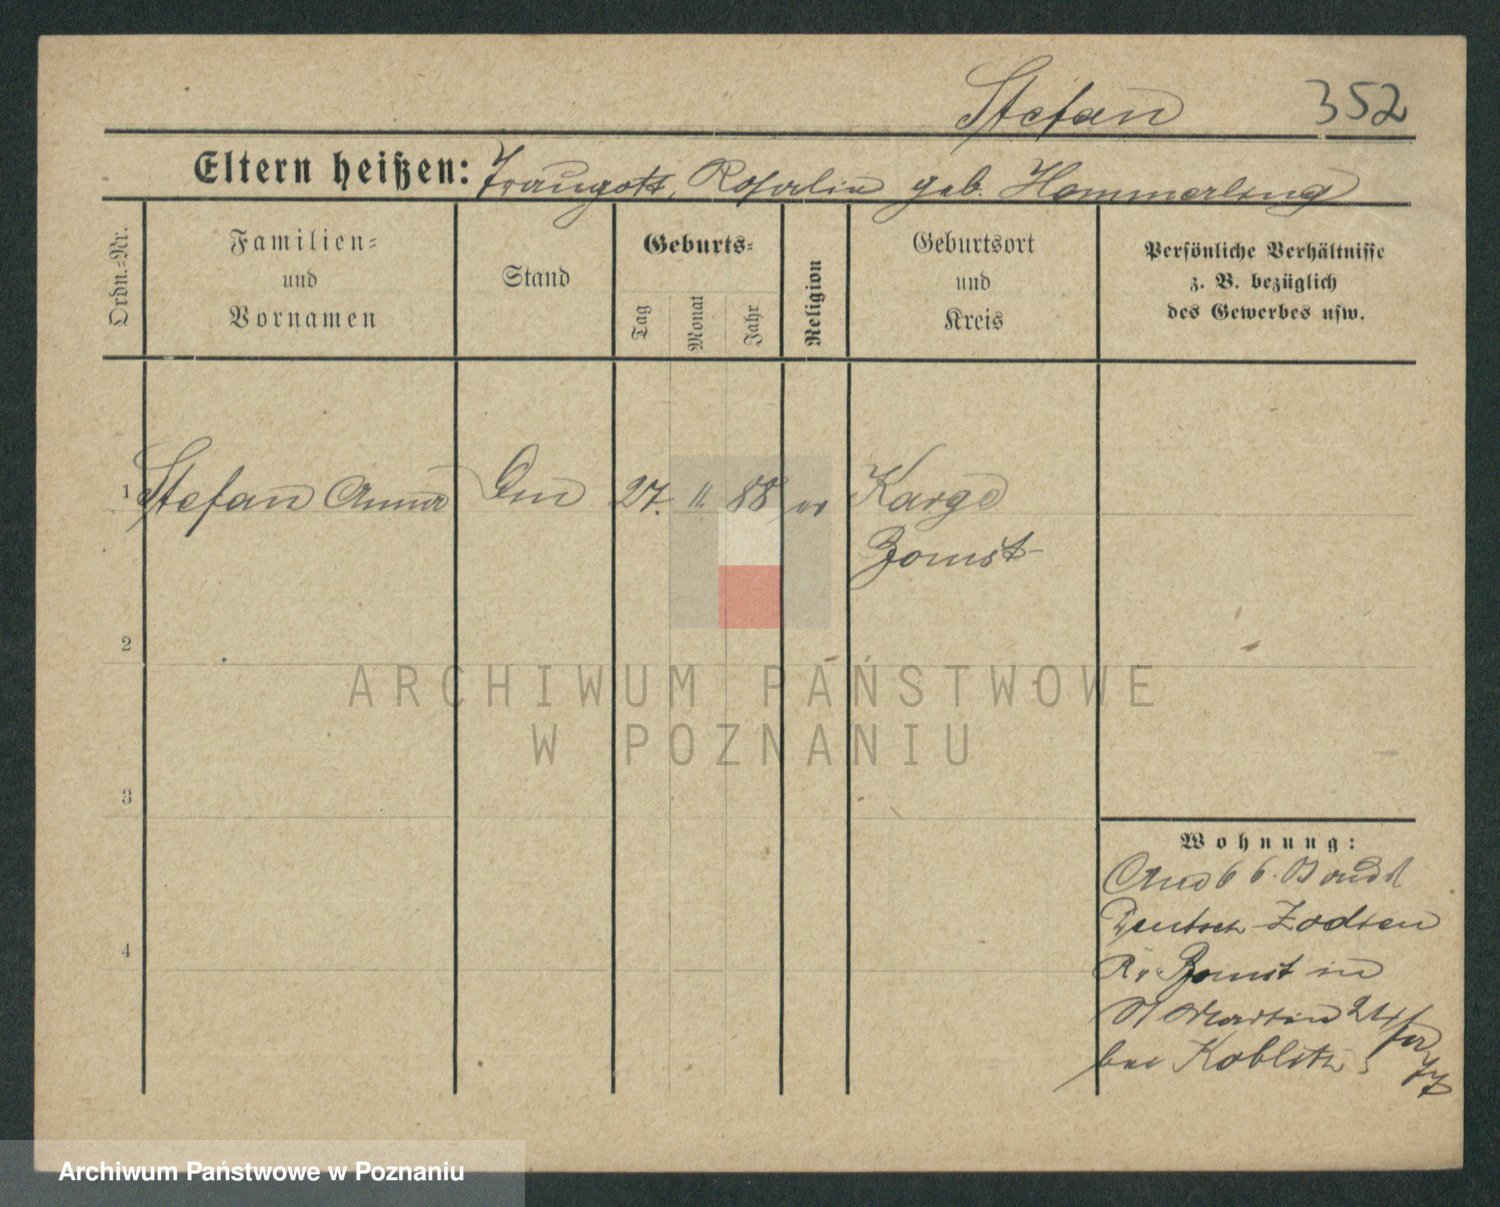 Stefan 352
Eltern heißen: Traugott, Rosalie geb. Hammerling
Ordn.-Nr.
Familien-
und
Vornamen
Stand
Geburts-
Tag
Monat
Jahr
Religion
Geburtsort
und
Kreis
Persönliche Verhältnisse
z. B. bezüglich
des Gewerbes usw.
1 Stefan Anna 27. 11. 88 ev Karge
Bomst
2
3
4
Wohnung:
6 6.
Deutsch
Kr. Bomst in
St Martin 24
bei
ARCHIWUM PAŃSTWOWE
W POZNANIU
Archiwum Państwowe w Poznaniu